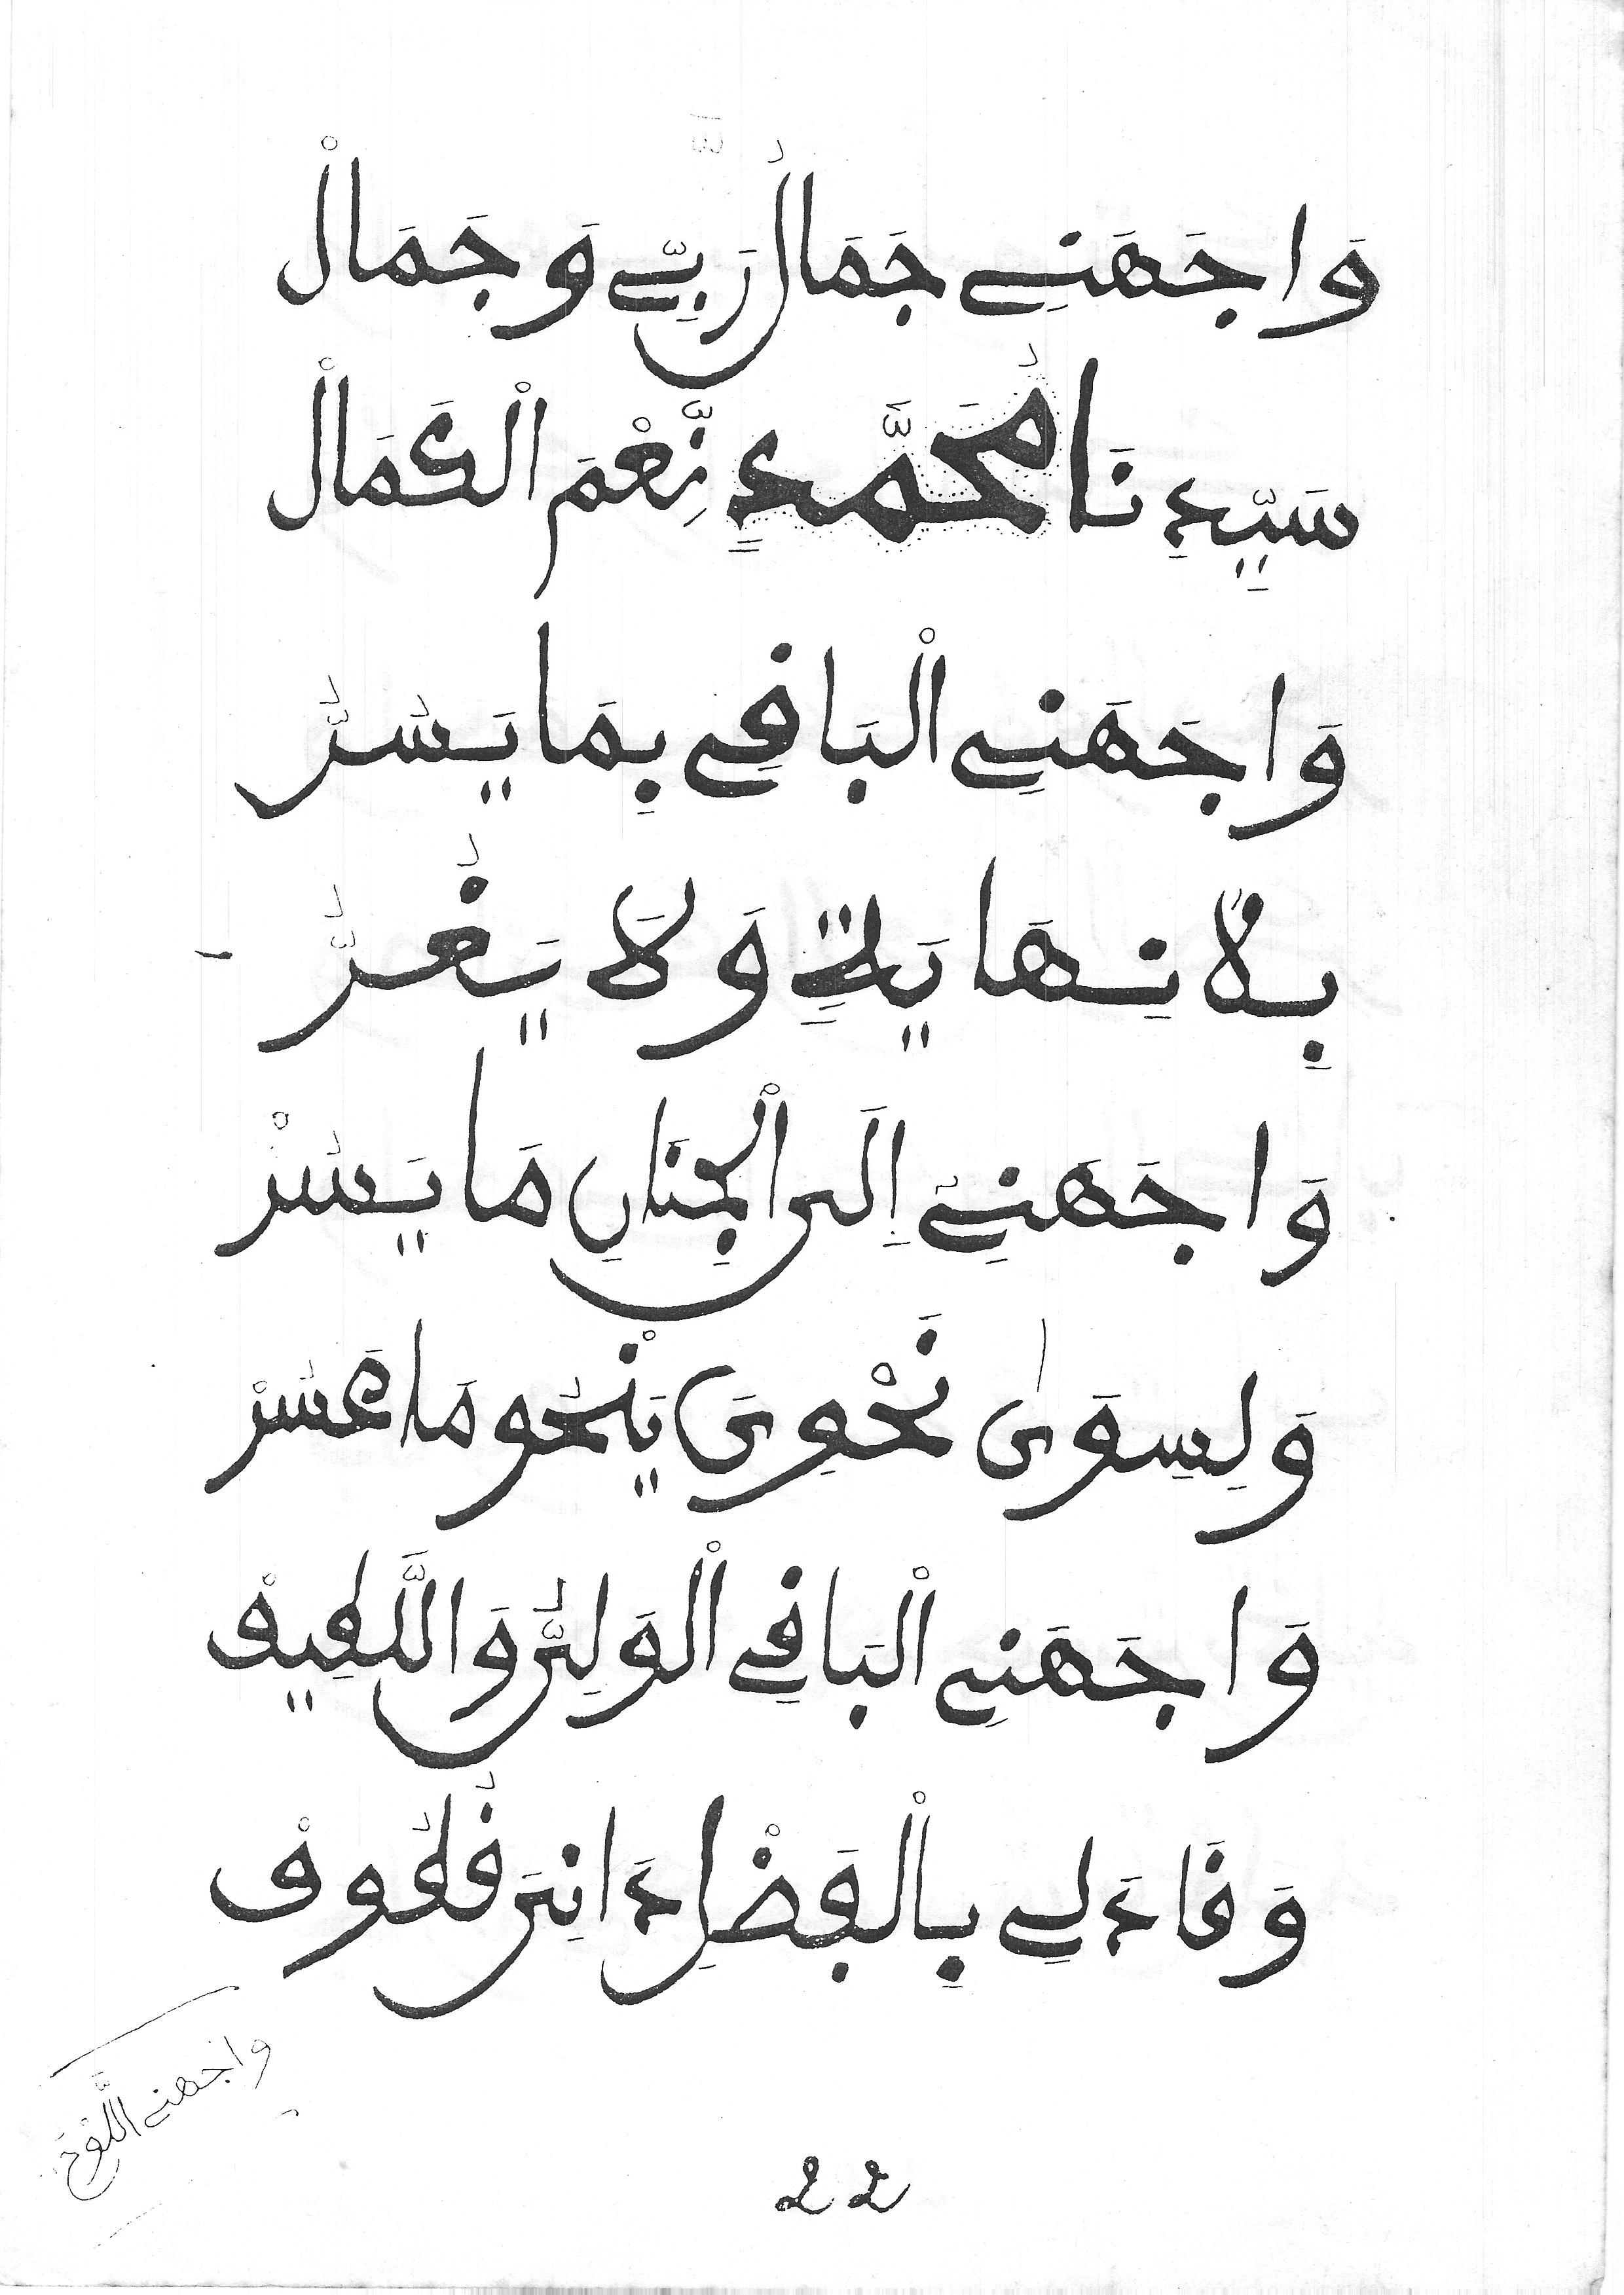 وَاجَهَنِي جَمَالُ رَبِّي وَجَمَالْ
سَيِّدِنَا مُحَمَّدٍ نِّعْمَ الْكَمَالْ
وَاجَهَنِي الْبَاقِي بِمَا يَسُرُّ
بِلَا نِهَايَةٍ وَلَا يَغُرُّ
وَاجَهَنِي إِلَى الْجِنَانِ مَا يَسُرْ
وَلِسِوَىٰ نَحْوِيَ يَنْحُو مَا عَسُرْ
وَاجَهَنِي الْبَاقِي الْوَلِيُّ وَاللَّطِيفْ
وَقَادَ لِي بِالْفَضْلِ دَانِيَ قُطُوفْ
واجهني اللَّوْحَ
22